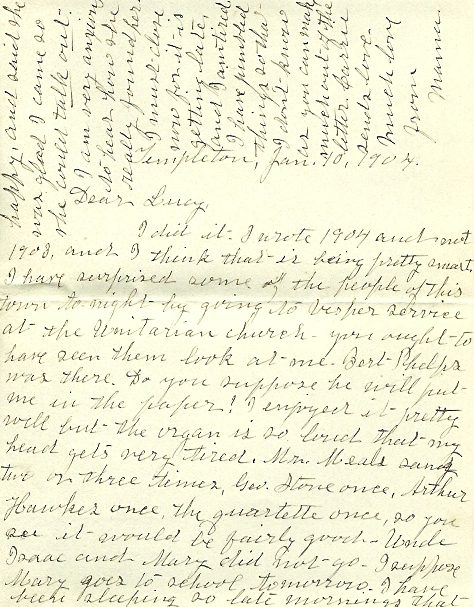 Templeton, Jan. 10, 1904.
Dear Lucy,
I did it. I wrote 1904 and not
1903, and I think that is being pretty smart,
I have surprised some of the people of this
town to-night by going to vesper service
at the Unitarian church - you ought to
have seen them look at me. Bert Phelps
was there. Do you suppose he will put
me in the paper? I enjoyed it pretty
well but the organ is so loud that my
head gets very tired. Mr. Meals sang
two or three times, Geo. Stone once, Arthur
Hawkes once, the quartette once, so you
see it would be fairly good. Uncle
Isaac and Mary did not go. I suppose
Mary goes to school tomorrow. I have
been sleeping so late mornings that
happy, and said she
was glad I came so
she would talk out.
I am very anxious
to hear how she
really found her.
I must close
now for it is
getting late,
and I am tired
I have jumbled
things so that
I don't know
as you can make
much out of the
letter
sends love.
Much love
from
Mama.